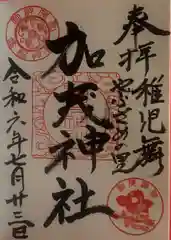 奉拝 稚児舞
やぶさめの里
加茂神社
令和六年七月廿三日